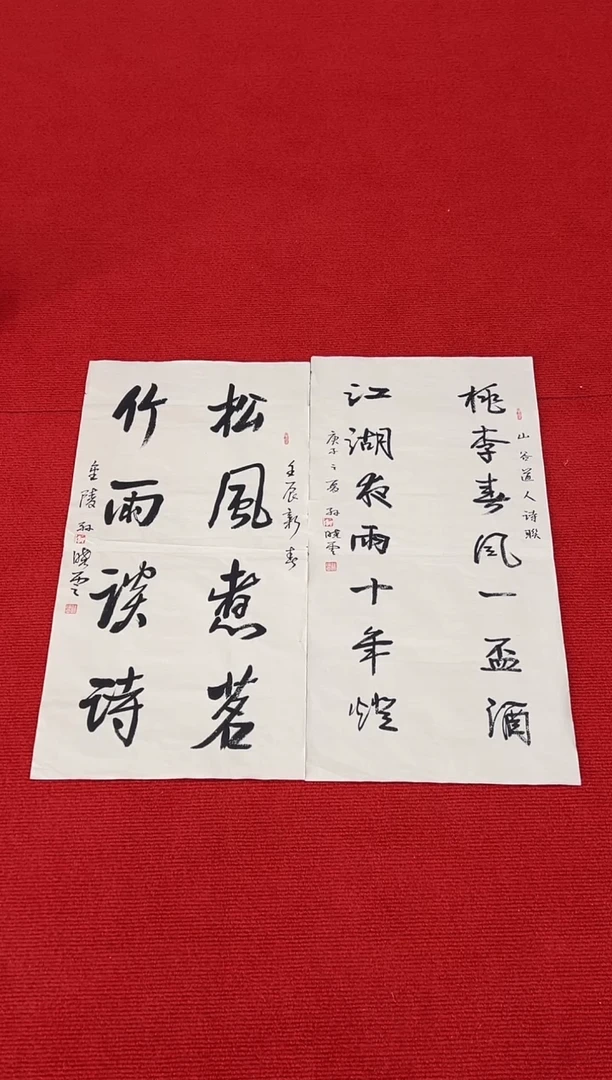 山谷道人诗联
桃李春风一盃酒
江湖夜雨十年燈
庚子之夏 孙晓雲
壬辰新春
松風煮茗
竹雨谈诗
金陵孙晓雲